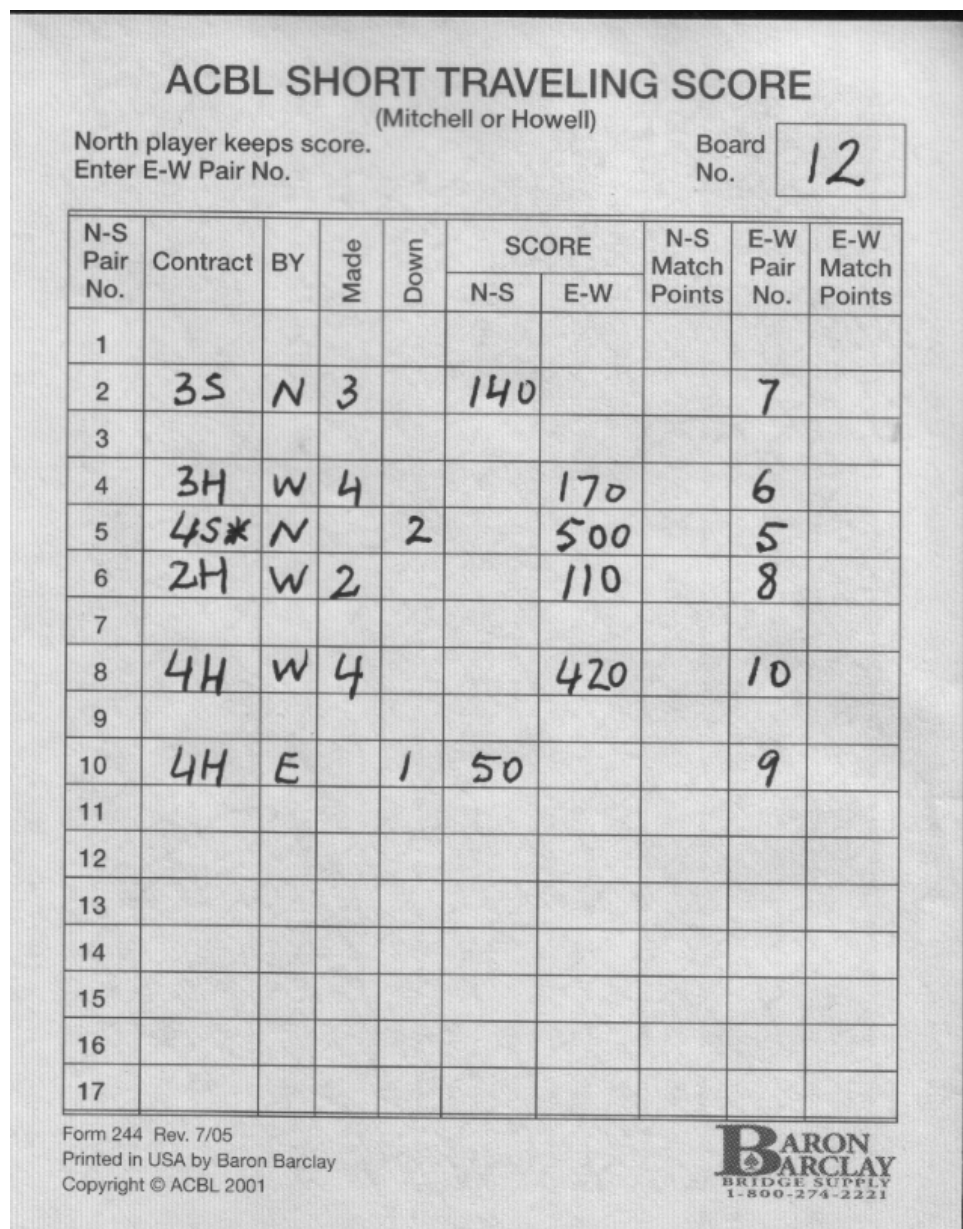 ACBL SHORT TRAVELING SCORE
(Mitchell or Howell)
North player keeps score.
Enter E-W Pair No.
Board No. 12
N-S Pair No. Contract BY Made Down SCORE N-S E-W N-S Match Points E-W Pair No. E-W Match Points
1
2 3S N 3 140 7
3
4 3H W 4 170 6
5 4S* N 2 500 5
6 2H W 2 110 8
7
8 4H W 4 420 10
9
10 4H E 1 50 9
11
12
13
14
15
16
17
Form 244 Rev. 7/05
Printed in USA by Baron Barclay
Copyright © ACBL 2001
BARON
BARCLAY
BRIDGE SUPPLY
1-800-274-2221